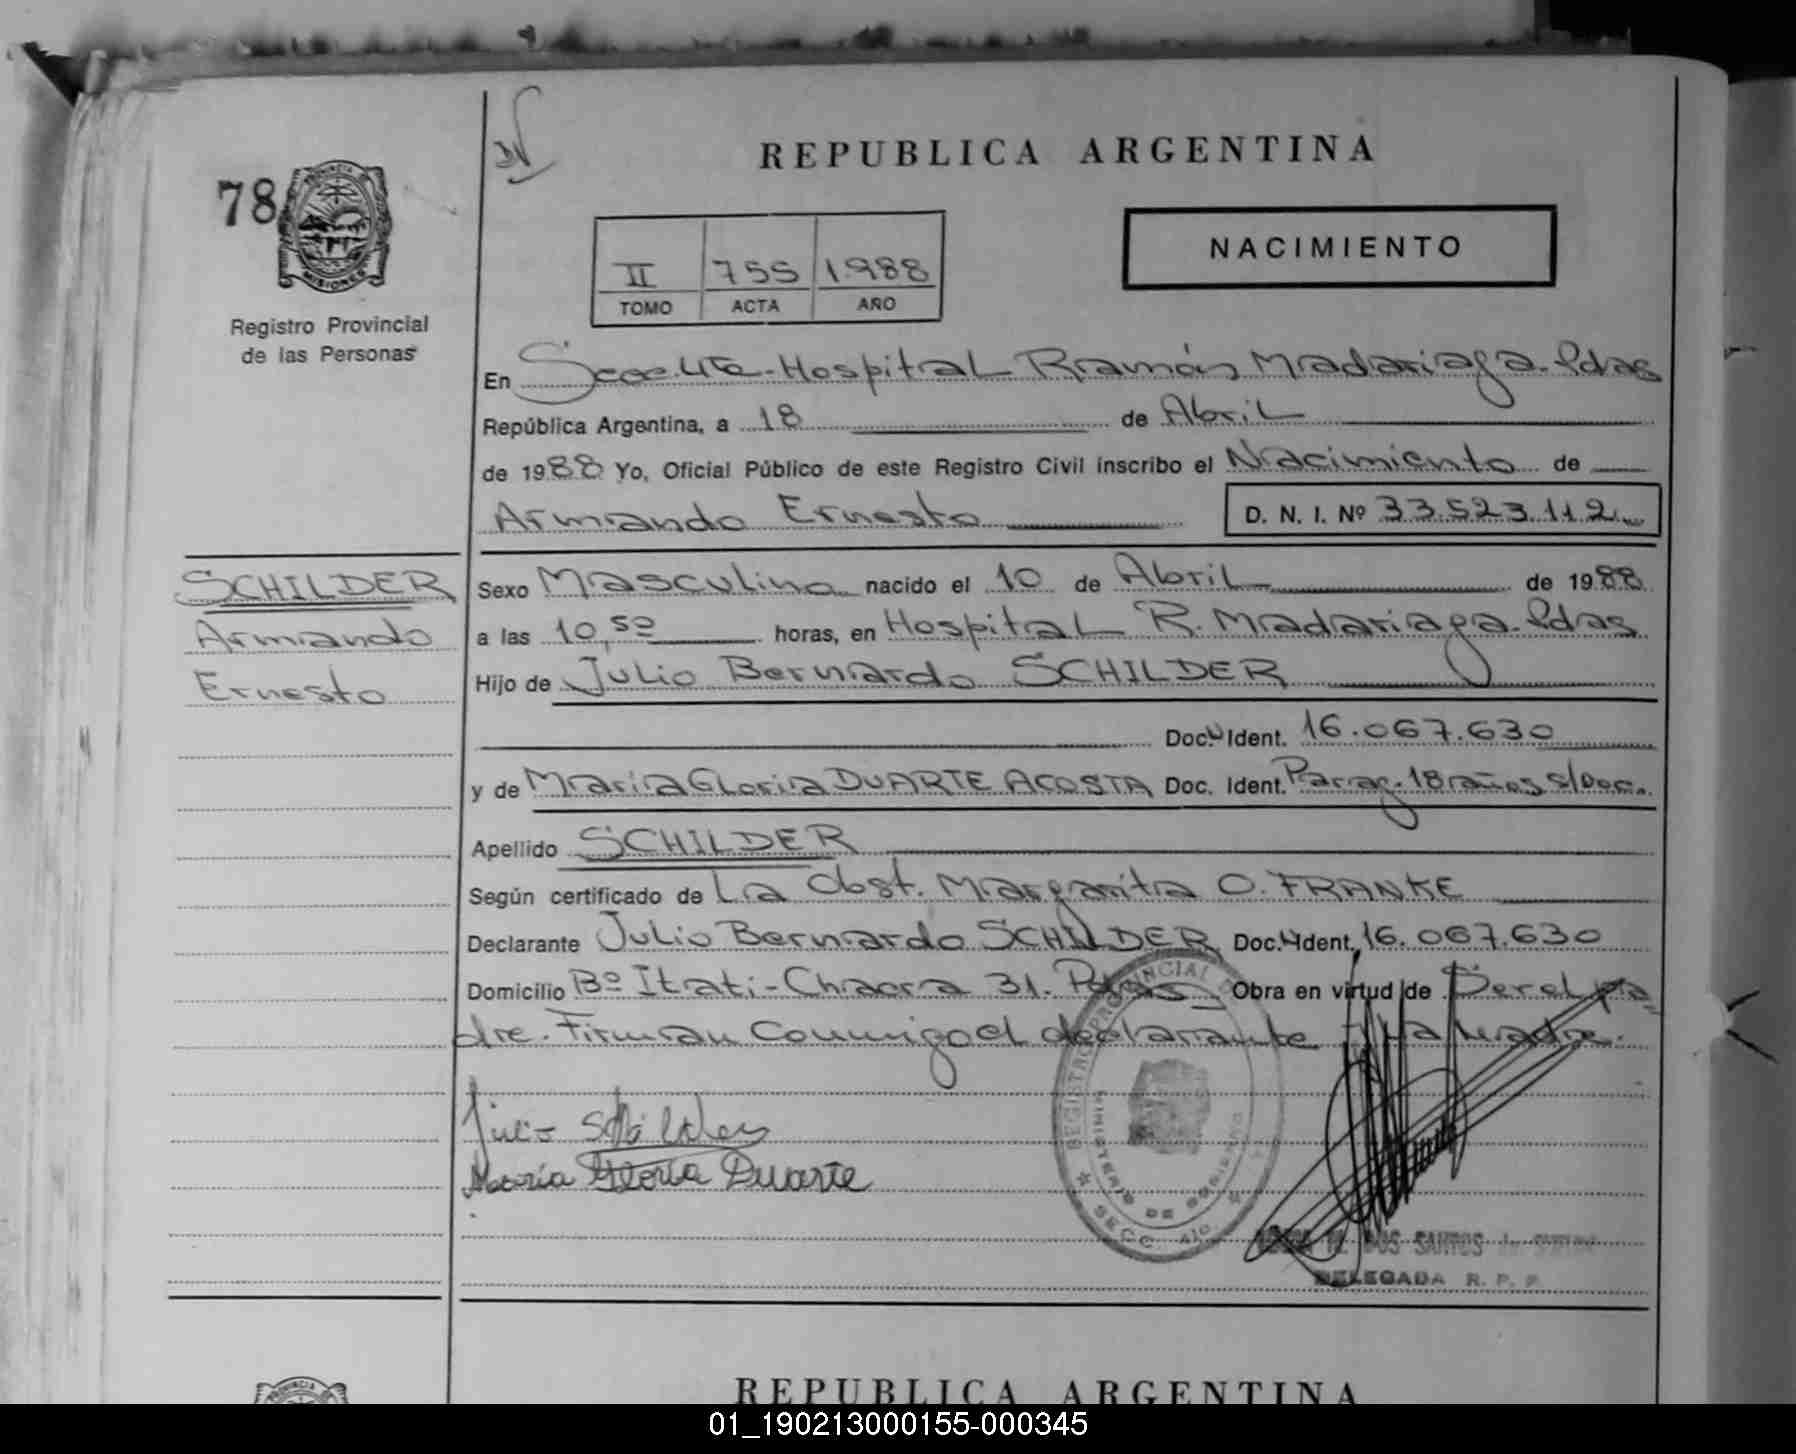 78
PROVINCIA DE
MISIONES
Registro Provincial
de las Personas
REPUBLICA ARGENTINA
II 755 1988
TOMO ACTA AÑO
NACIMIENTO
En Secc 4ta-Hospital Ramón Madariaga-Pdas
República Argentina, a 18 de Abril
de 1988 Yo, Oficial Público de este Registro Civil inscribo el Nacimiento de
Armando Ernesto D. N. I. Nº 33.523.112
SCHILDER
Armando
Ernesto
Sexo Masculino nacido el 10 de Abril de 1988
a las 10,50 horas, en Hospital R. Madariaga-Pdas
Hijo de Julio Bernardo SCHILDER
Doc. Ident. 16.067.630
y de María Gloria DUARTE ACOSTA Doc. Ident. Parag. 18 años s/Doc.
Apellido SCHILDER
Según certificado de La Obst. Margarita O. FRANKE
Declarante Julio Bernardo SCHILDER Doc. Ident. 16.067.630
Domicilio Bº Itatí-Chacra 31. Pdas Obra en virtud de Ser el pa-
dre. Firman Conmigo el declarante y la Madre.
Julio Schilder
María Gloria Duarte
REGISTRO PROVINCIAL
MINISTERIO DE GOBIERNO
SECC. 4ta.
DOS SANTOS de
DELEGADA R. P. P.
PROVINCIA DE
REPUBLICA ARGENTINA
01_190213000155-000345